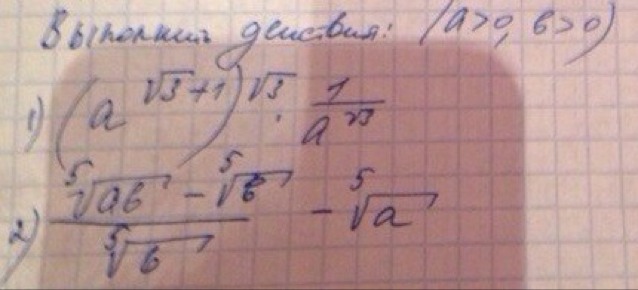 Выполнить действия: (a>0, b>0)
1) (a^(√3+1))^√3 · 1/a^√3
2) (⁵√ab - ⁵√b)/⁵√b - ⁵√a